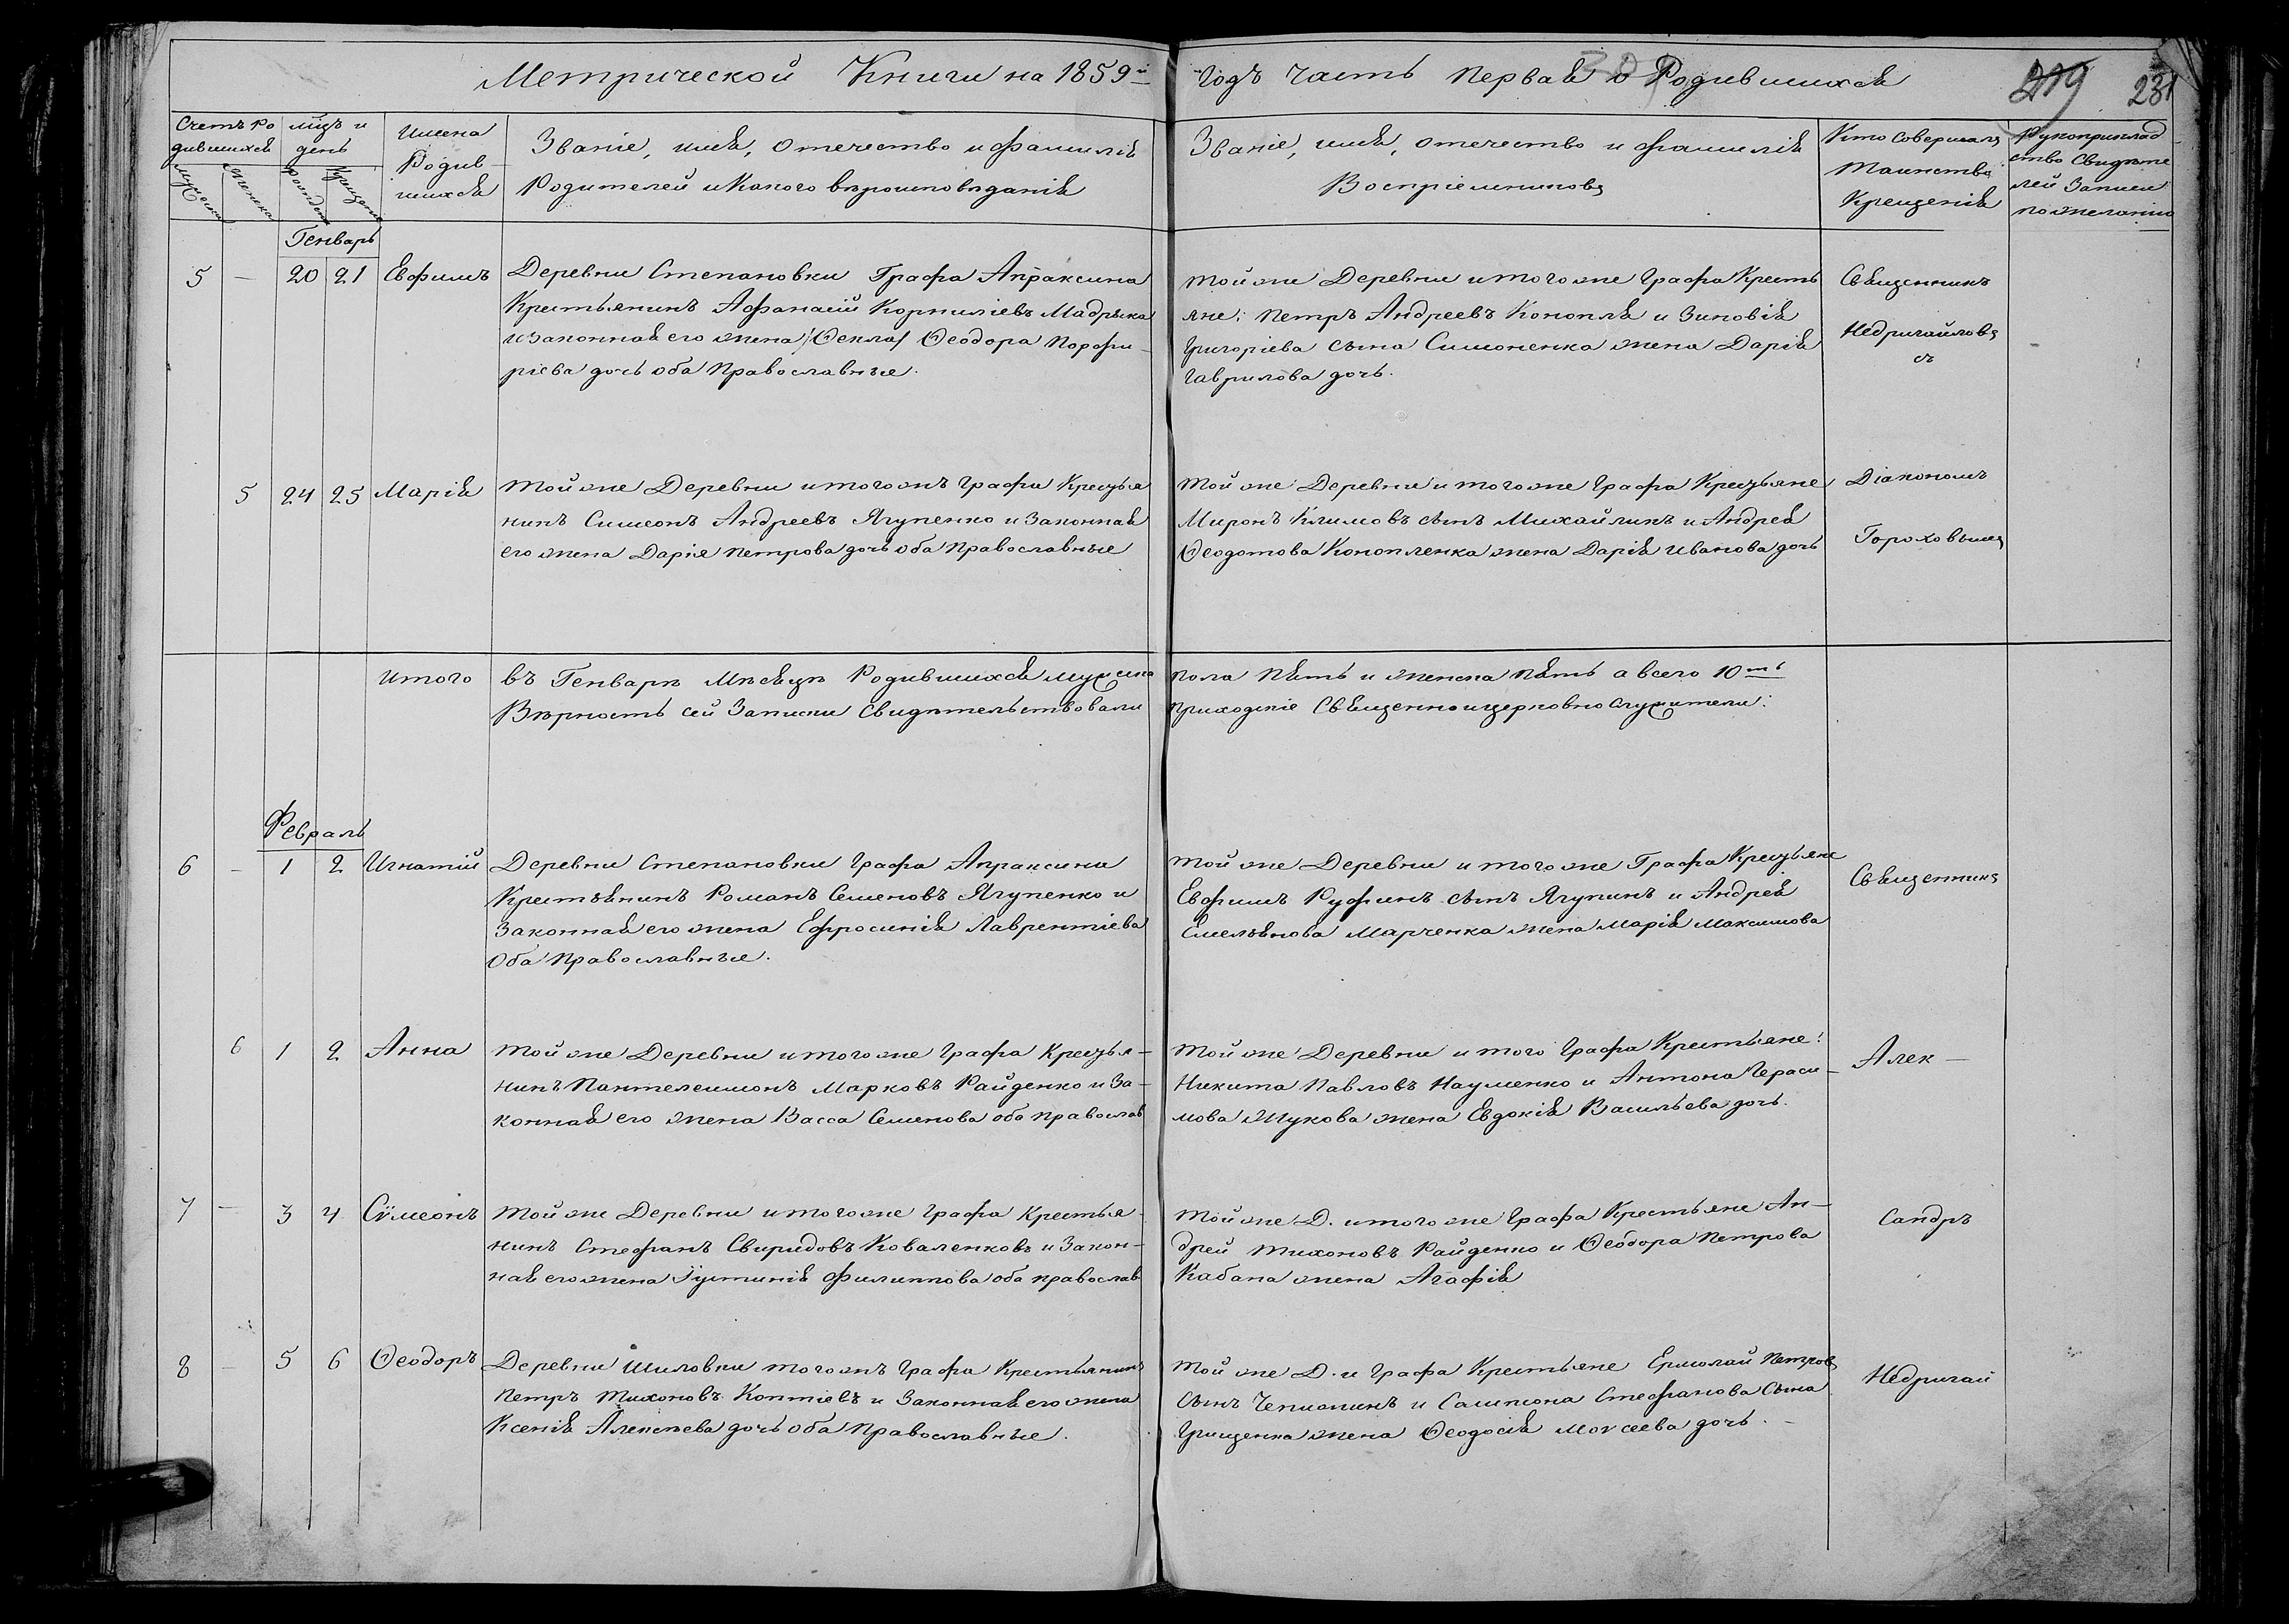 Метрической Книги на 1859й
Годъ Часть Первая о Родившихся
219 231
Счетъ Ро
дившихся
Мужеска
Женска
день
Рожден
Крещен
Имена
Родив
шихся
Званіе, имя, отечество и фамилія
Родителей и Какого вѣроисповѣданія
Званіе, имя, отечество и фамилія
Воспріемниковъ
Кто совершалъ
Таинство
Крещенія
Рукоприклад
ство Свидѣте
лей Записи
по желанію
Генварь
5 — 20 21 Евфимъ
Деревни Степановки Графа Апраксина
Крестьянинъ Афанасій Корниліевъ Мадрыка
и законная его жена /Фекла/ Ѳеодора Порфи-
ріева дочь оба Православные.
Той же Деревни и того же Графа Кресть
яне: Петръ Андреевъ Конопля и Зиновія
Григоріева сына Симоненка жена Дарія
Гаврилова дочь.
Священникъ
Недригайловъ
съ
5 24 25 Марія
Той же Деревни и того жъ Графа Крестья
нинъ Симеонъ Андреевъ Ягупенко и Законная
его жена Дарія Петрова дочь оба Православные
Той же Деревни и того же Графа Крестьяне
Миронъ Климовъ сынъ Михайликъ и Андрея
Ѳеодотова Конопленка жена Дарія Иванова дочь
Діакономъ
Гороховымъ
Итого
въ Генварѣ Мѣсяцѣ Родившихся мужеска
Вѣрность сей Записки Свидѣтельствовали
пола Пять и женска пять а всего 10ть
Приходскіе Священно и церковно служители:
Февраль
6 — 1 2 Игнатій
Деревни Степановки Графа Апраксина
Крестьянинъ Романъ Семеновъ Ягупенко и
Законная его жена Ефросинія Лаврентіева
Оба Православные.
Той же Деревни и того же Графа Крестьяне
Евфимъ Руфинъ сынъ Ягупинъ и Андрея
Емельянова Марченка жена Марія Максимова
Священникъ
6 1 2 Анна
Той же Деревни и того же Графа Крестья-
нинъ Пантелеимонъ Марковъ Райденко и За-
конная его жена Васса Семенова оба Православ
Той же Деревни и того Графа Крестьяне:
Никита Павловъ Науменко и Антона Гераси-
мова Жукова жена Евдокія Васильева дочь.
Алек-
7 — 3 4 Сѵмеонъ
Той же Деревни и того же Графа Крестья-
нинъ Стефанъ Свиридовъ Коваленковъ и Закон-
ная его жена Іустинія Филиппова оба православ
Той же Д. и того же Графа Крестьяне Ан-
дрей Тихоновъ Райденко и Ѳеодора Петрова
Кабана жена Агафія
Сандръ
8 — 5 6 Ѳеодоръ
Деревни Шиловки того жъ Графа Крестьянинъ
Петръ Тихоновъ Коптіевъ и Законная его жена
Ксенія Алексѣева дочь оба Православные.
Той же Д. и Графа Крестьяне Ермолай Петровъ
Сынъ и Сампсона Стефанова Сына
Грищенка жена Ѳеодосія Моѵсеева дочь.
Недригай